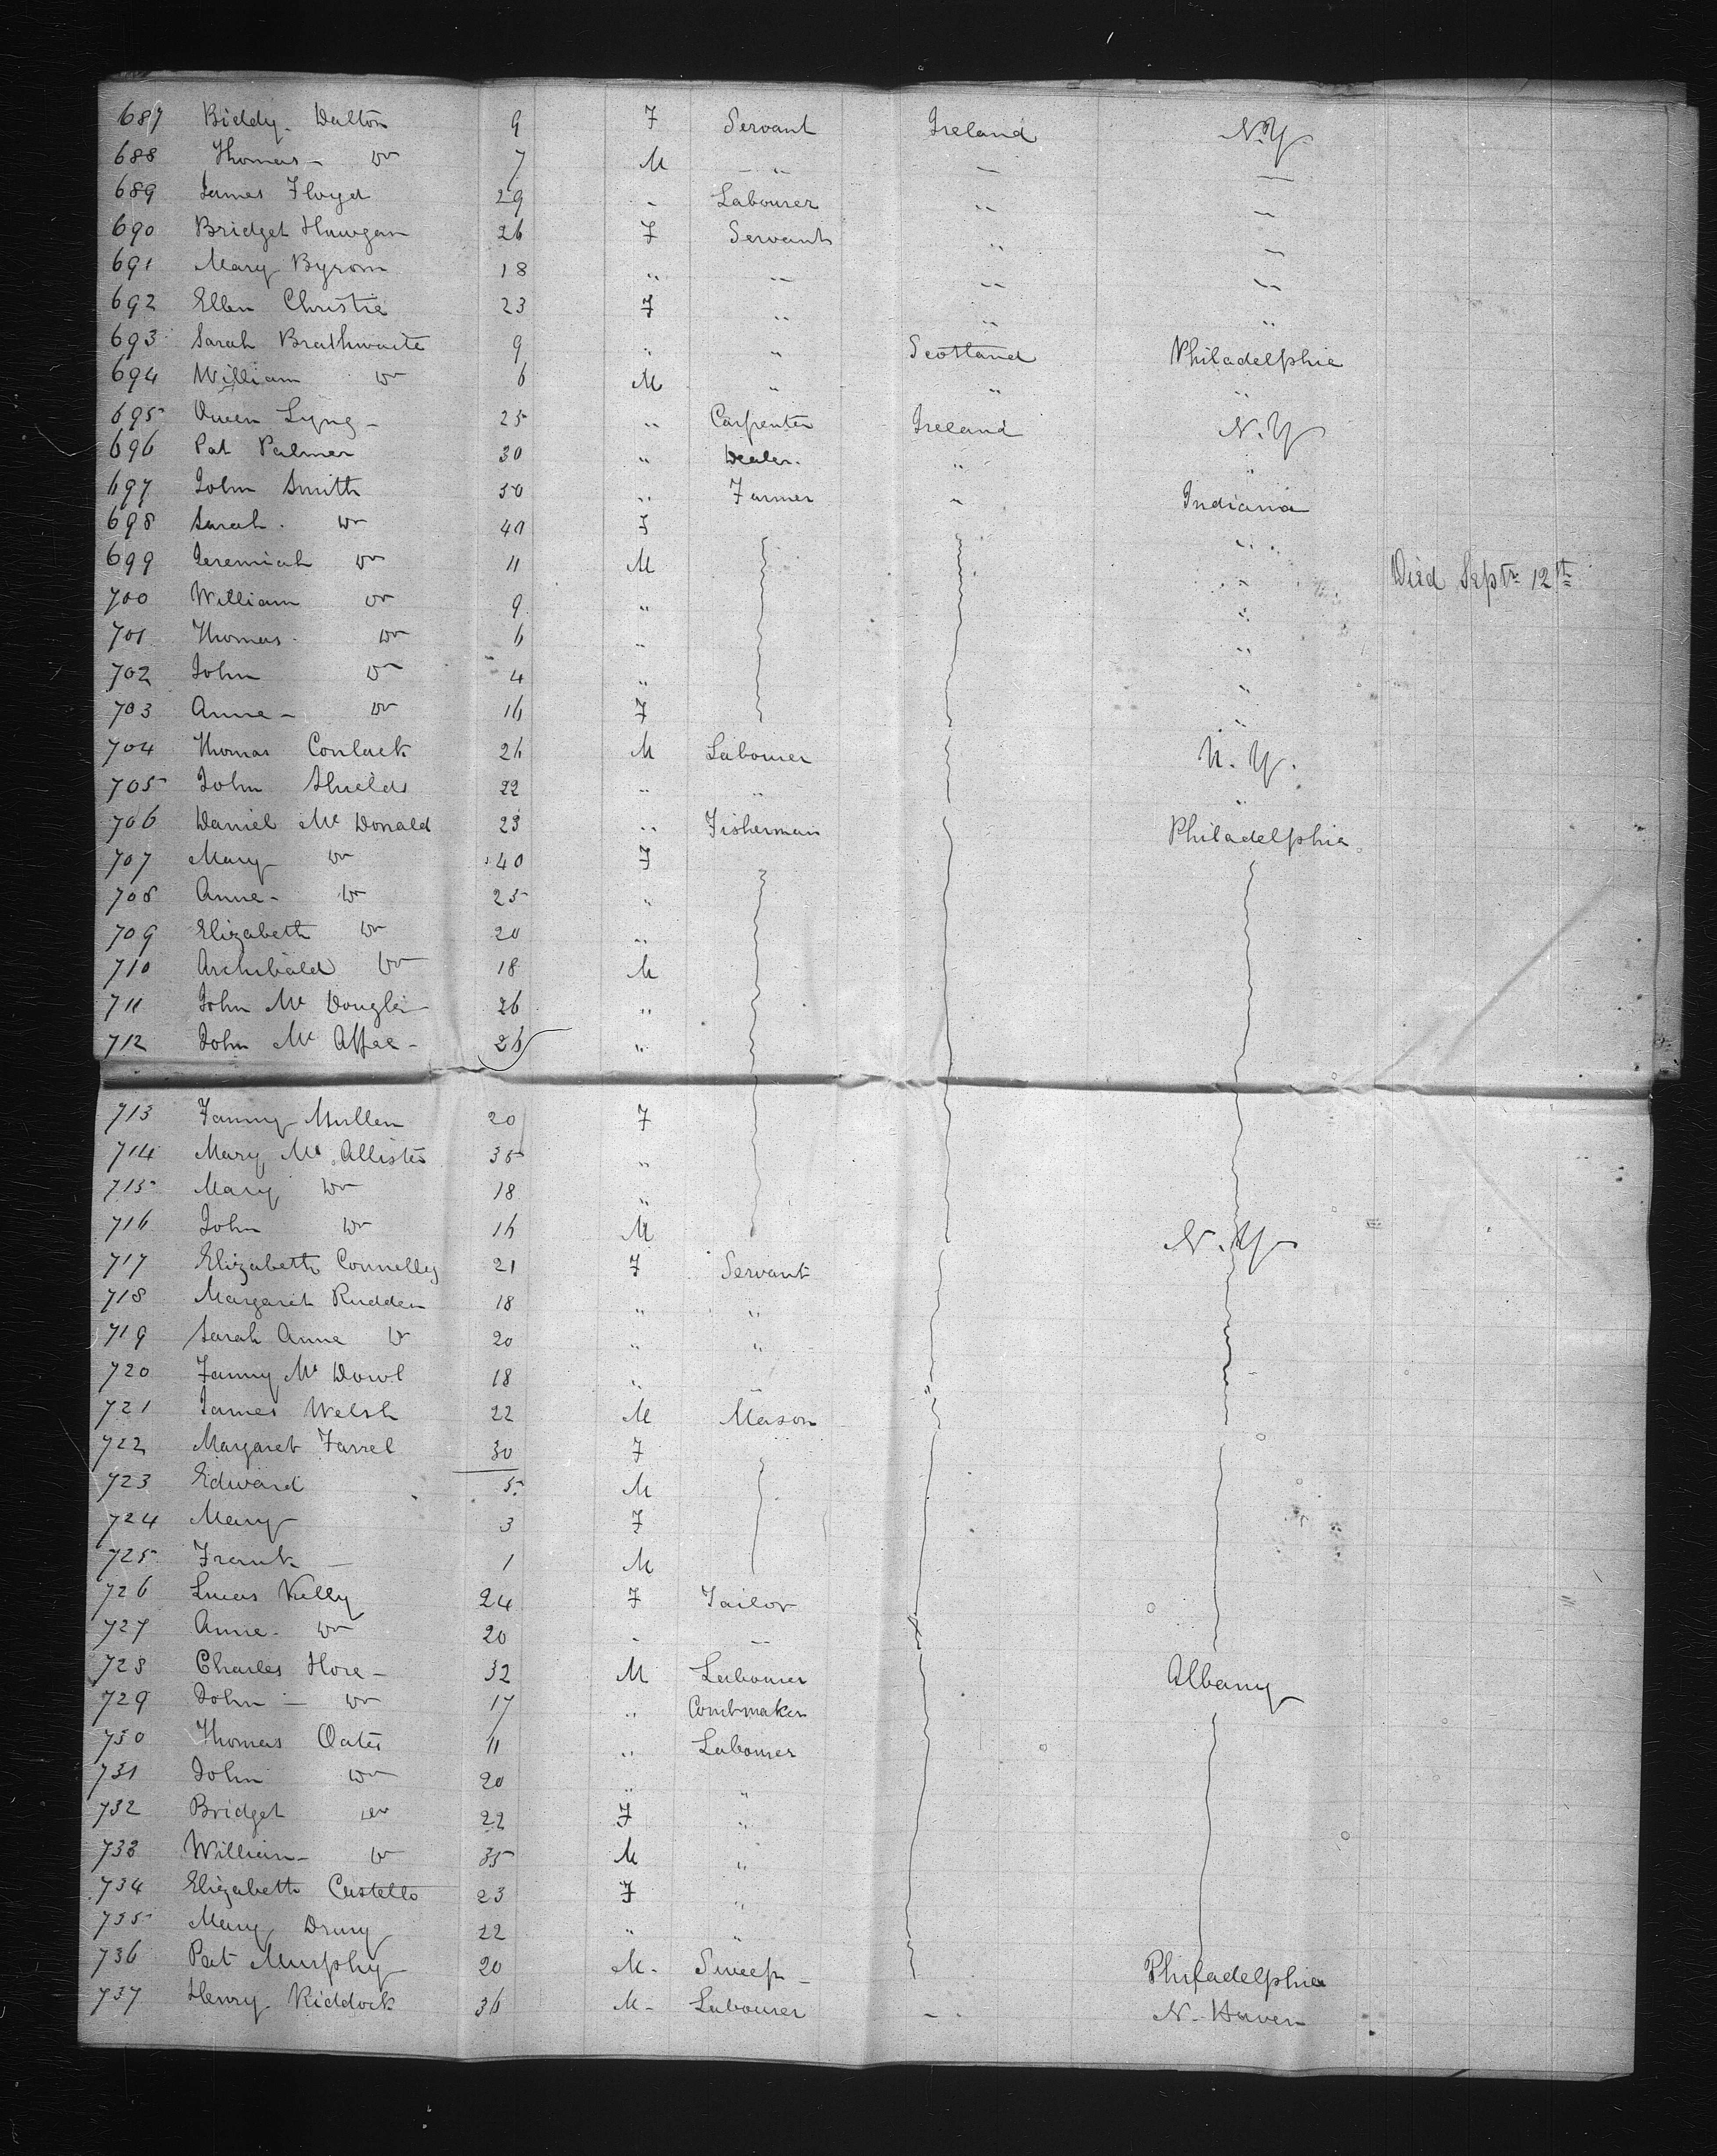 687 Biddy Dalton 9 F Servant Ireland N.Y
688 Thomas - Do 7 M " — —
689 James Floyd 29 - Labourer " "
690 Bridget 26 F Servant " "
691 Mary Byrom 18 " " " "
692 Ellen Christie 23 F " " "
693 Sarah Brathwaite 9 " " Scotland Philadelphia
694 William Do 6 M " " "
695 Owen Lyng - 25 " Carpenter Ireland N.Y
696 Pat Palmer 30 " Dealer. " "
697 John Smith 50 " Farmer " Indiana
698 Sarah. Do 40 F "
699 Jeremiah Do 11 M " Died Septr 12th
700 William Do 9 " "
701 Thomas. Do 6 " "
702 John Do 4 " "
703 Anne - Do 16 F "
704 Thomas Conlack 26 M Labourer N.Y.
705 John Shields 22 " " "
706 Daniel Mc Donald 23 " Fisherman Philadelphia
707 Mary Do 40 F
708 Anne - Do 25 "
709 Elizabeth Do 20 "
710 Archibald Do 18 M
711 John Mc 26 "
712 John Mc Affee - 26 "
713 Fanny Mullen 20 F
714 Mary Mc Allister 35 "
715 Mary Do 18 "
716 John Do 16 M N.Y
717 Elizabeth Connelly 21 F Servant
718 Margaret Rudden 18 " "
719 Sarah Anne Do 20 " "
720 Fanny Mc Dowl 18 " " "
721 James Welsh 22 M Mason
722 Margaret Farrel 30 F
723 Edward 5 M
724 Mary 3 F
725 Frank — 1 M
726 Lucas Kelly 24 F Tailor
727 Anne - Do 20 - "
728 Charles Hore - 32 M Labourer Albany
729 John — Do 17 " Combmaker
730 Thomas Oates 11 " Labourer
731 John Do 20 " "
732 Bridget Do 22 F "
733 William - Do 35 M "
734 Elizabeth Costello 23 F "
735 Mary Drury 22 " "
736 Pat Murphy 20 M - Sweep - Philadelphia
737 Henry Riddock 36 M - Labourer - . N. Haven